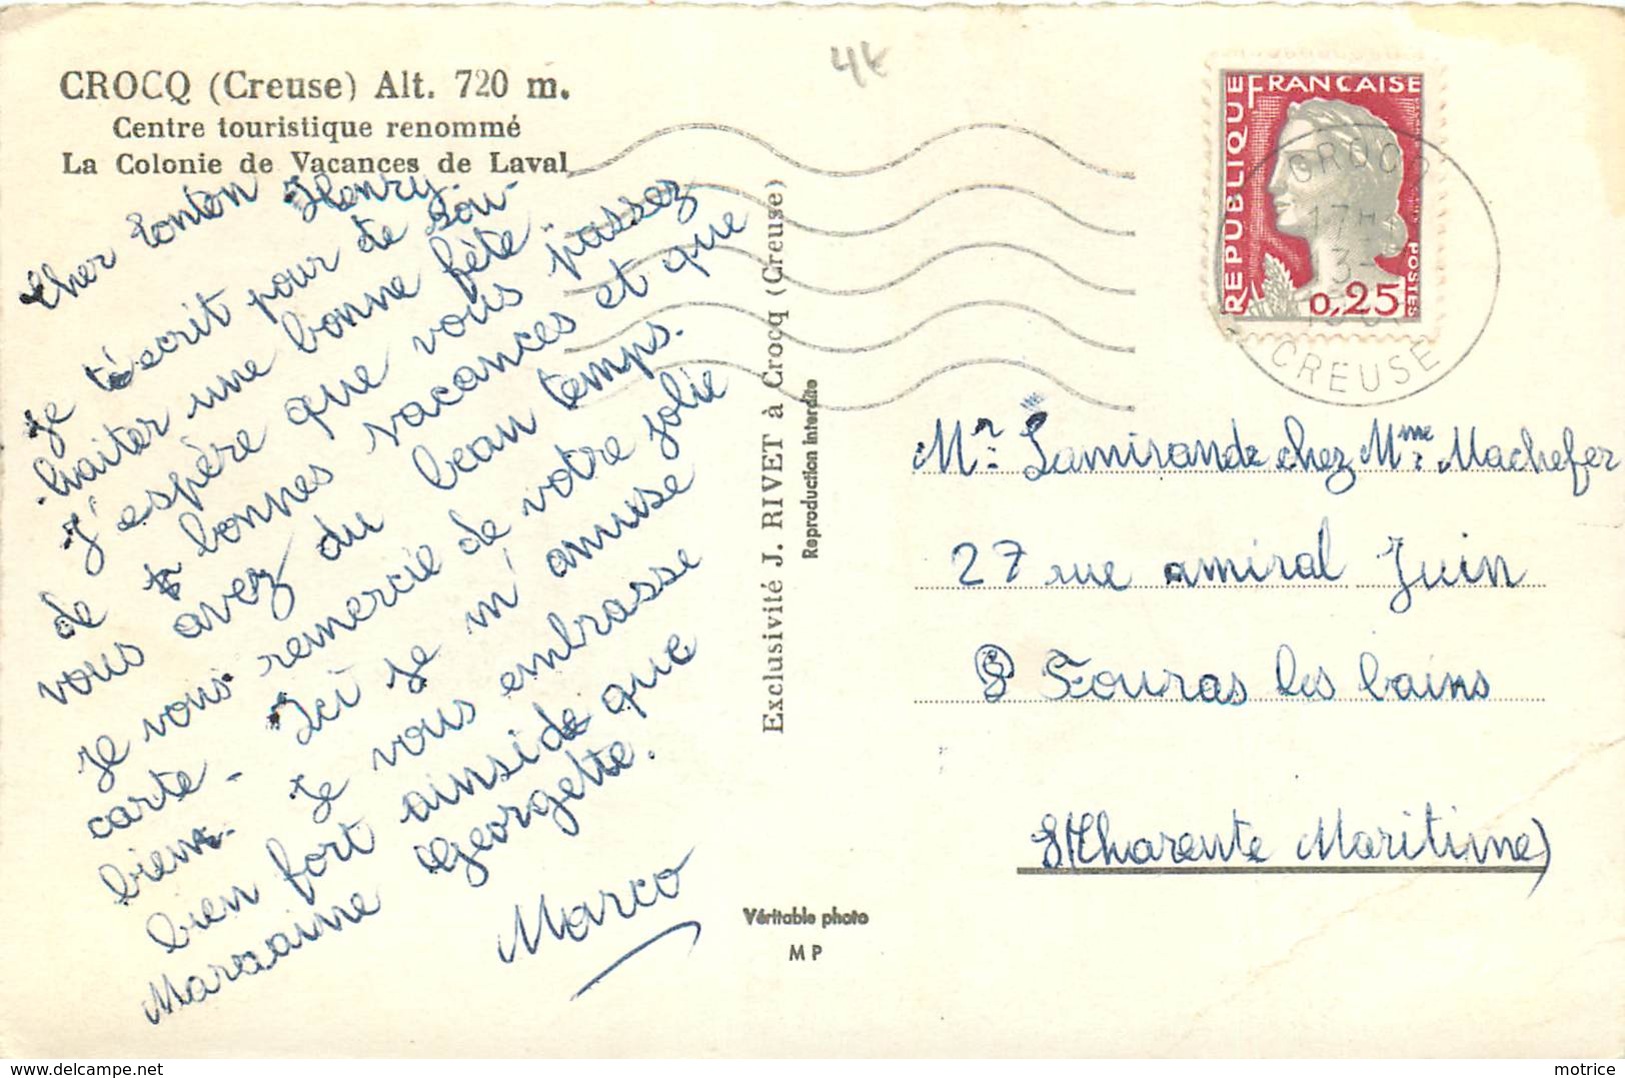 CROCQ (Creuse) Alt. 720 m.
Centre touristique renommé
La Colonie de Vacances de Laval
Cher tonton Henry.
Je t'écrit pour te sou-
haiter une bonne fête
J'espère que vous passez
de bonnes vacances et que
vous avez du beau temps.
Je vous remercie de votre jolie
carte - Ici je m'amuse
bien. Je vous embrasse
bien fort ainsi que
Marraine Georgette.
Marco
4k
Exclusivité J. RIVET à Crocq (Creuse)
Reproduction interdite
Véritable photo
M P
REPUBLIQUE FRANÇAISE
POSTES
0,25
CROCQ
17H
13-
CREUSE
Mr. Lamirande chez Mme Machefer
27 rue amiral Juin
Fouras les bains
(Charente Maritime)
https://www.delcampe.net
motrice